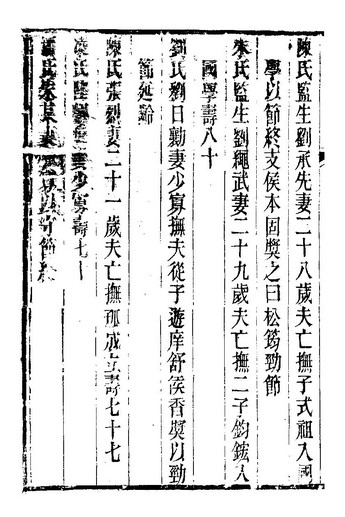 陳氏監生劉承先妻二十八歲夫亡撫子式祖入國
學以節終支侯本固獎之曰松筠勁節
朱氏監生劉繩武妻二十九歲夫亡撫二子鈞鋐入
國學壽八十
劉氏劉日勳妻少寡撫夫從子遊庠舒侯香獎以勁
節延齡
陳氏張劉妻二十一歲夫亡撫孤成立壽七十七
氏監劉妻少寡壽七十
氏妻以守節終